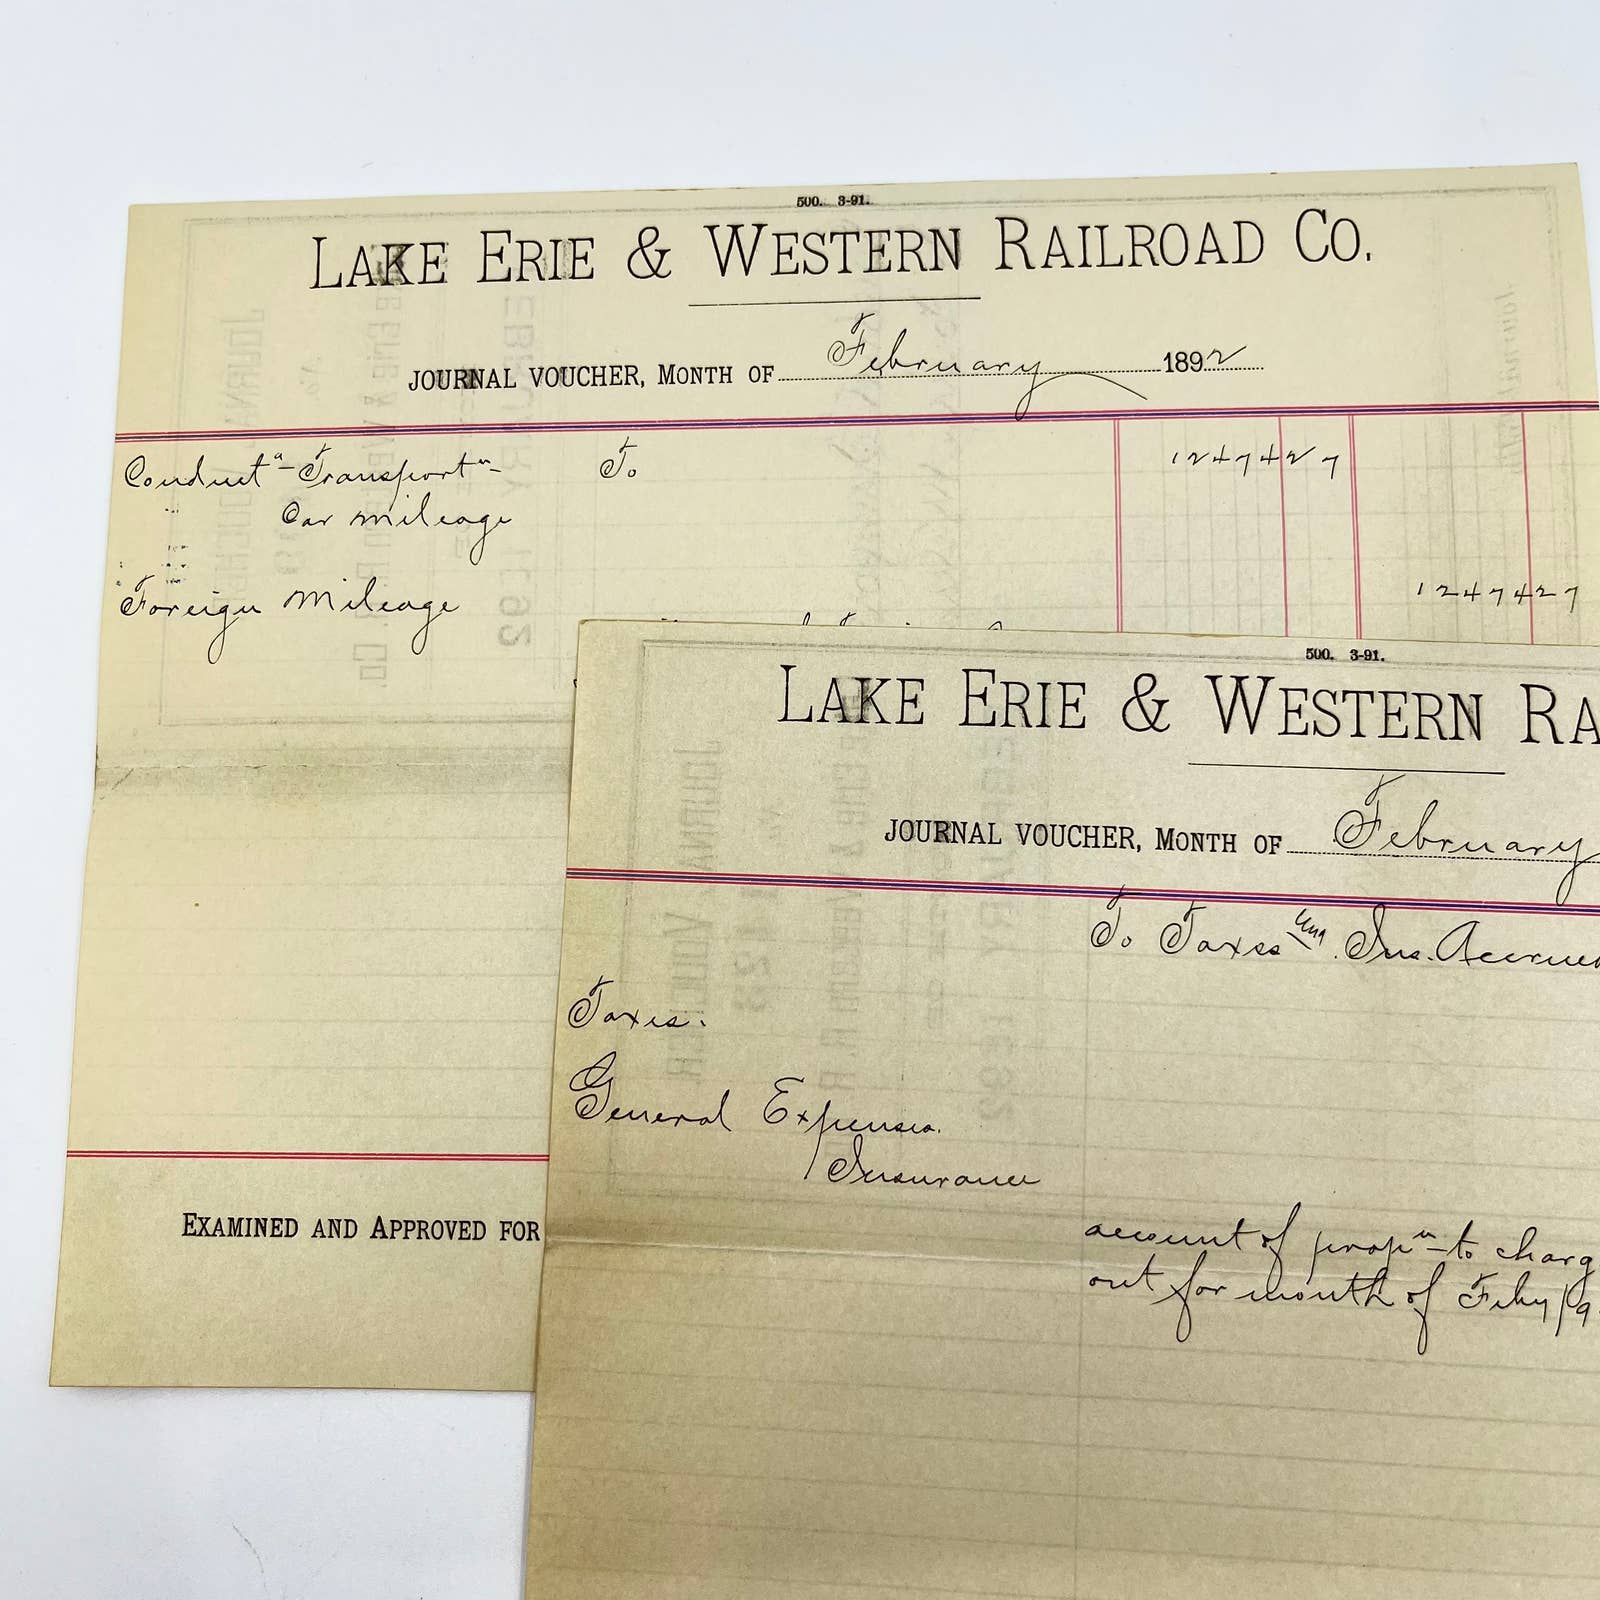 500. 3-91.
LAKE ERIE & WESTERN RAILROAD CO.
JOURNAL VOUCHER, MONTH OF February 1892
Conduct^g Transport^n To 12474 27
Car mileage
Foreign Mileage 12474 27
EXAMINED AND APPROVED FOR
500. 3-91.
LAKE ERIE & WESTERN RA
JOURNAL VOUCHER, MONTH OF February
To Taxes and Ins. Accrued
Taxes.
General Expenses.
Insurance
account of prop^n to charg
out for month of Feby /9